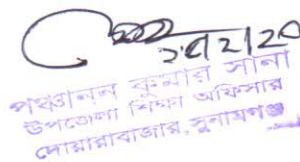 ২৫/2/20
পঞ্চানন কুমার সানা
উপজেলা শিক্ষা অফিসার
দোয়ারাবাজার, সুনামগঞ্জ